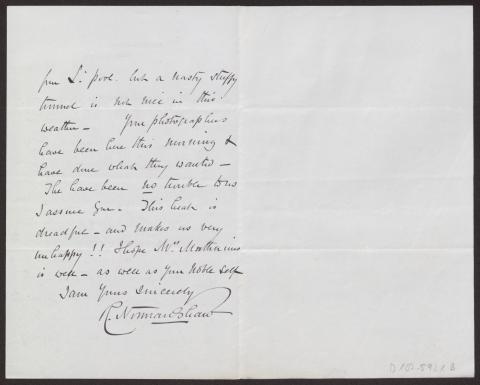 from L'pool. but a nasty stuffy
tunnel is not nice in this
weather – Your photographers
have been here this morning &
have done what they wanted –
The have been no trouble to us
I assure you. This heat is
dreadful – and makes us very
unhappy!! I hope Mrs
is well – as well as your noble self
I am Yours Sincerely
R. Norman Shaw